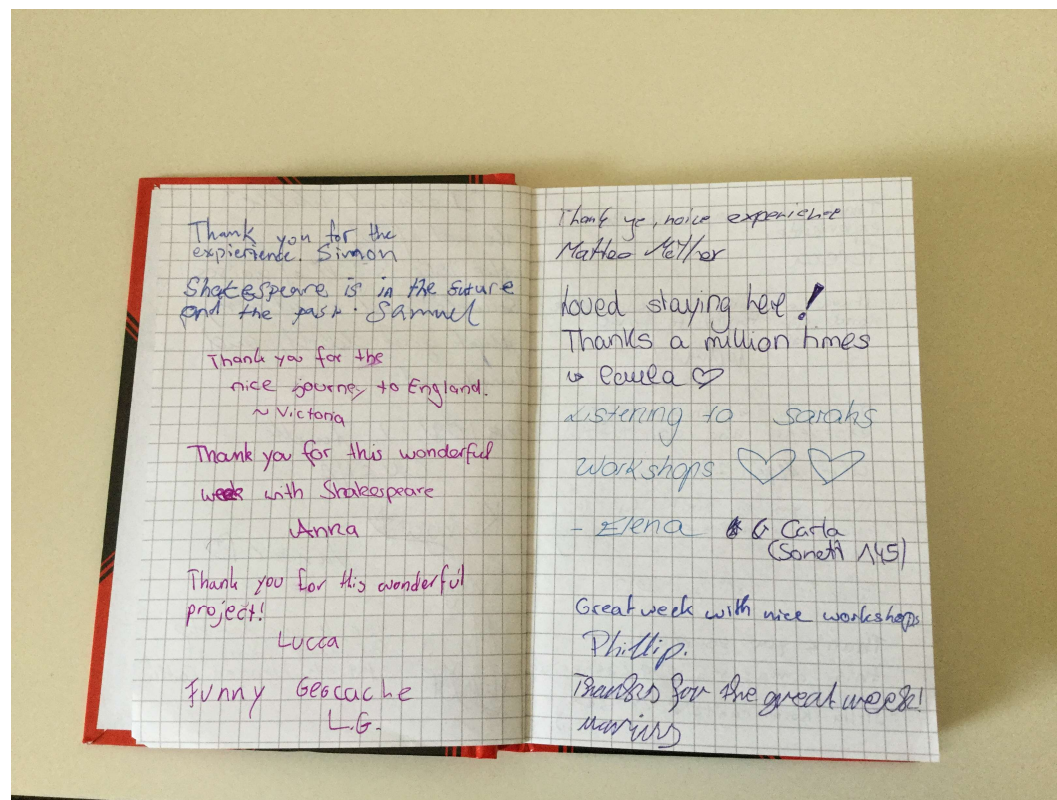 Thank you for the
expierience. Simon
Shakespeare is in the future
and the past. Samuel
Thank you for the
nice journey to England.
~ Victoria
Thank you for this wonderful
week with Shakespeare
Anna
Thank you for this wonderful
project!
Lucca
Funny Geocache
L.G.
Thank ye, noice experience
Matteo
Loved staying here!
Thanks a million times
Paula ♡
Listening to sarahs
workshops ♡ ♡
- Elena & Carla
(Sonett 145)
Great week with nice workshops
Phillip.
Thanks for the great week!
Marius